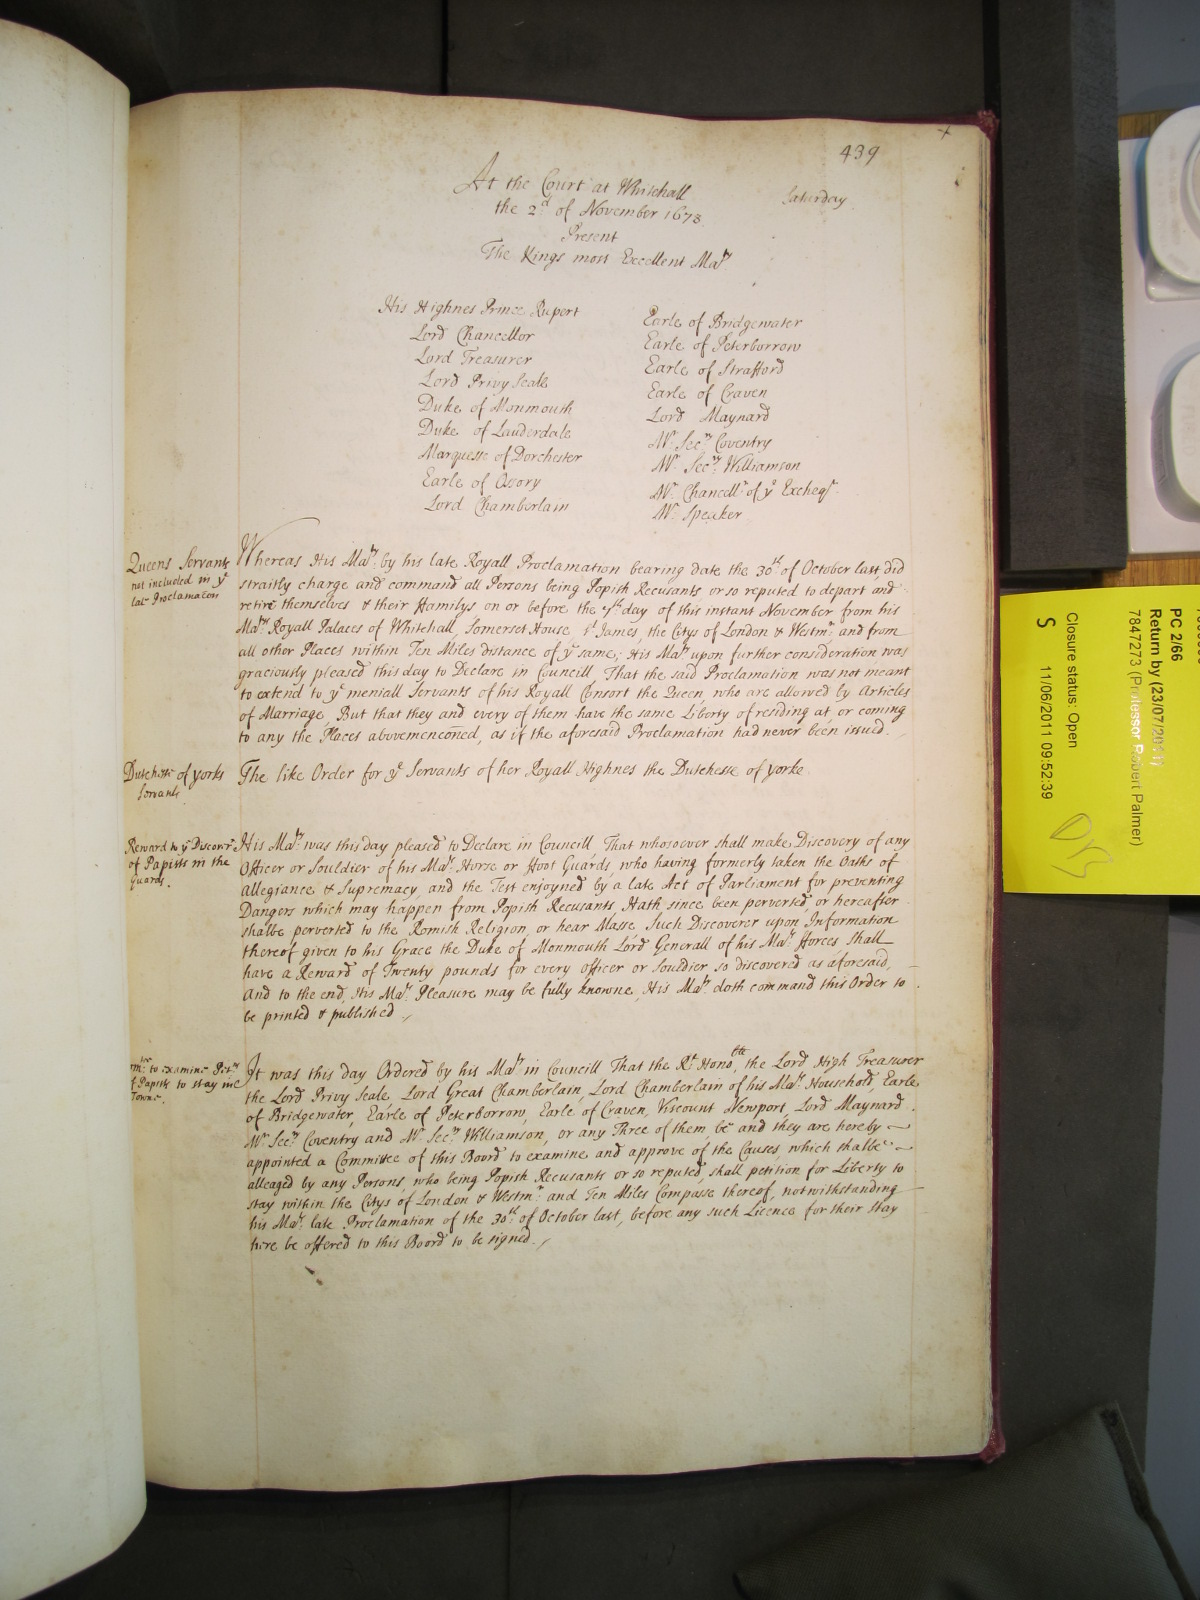 439
At the Court at Whitehall
Saturday
the 2d of November 1678
Present
The Kings most Excellent Maty
His Highnes Prince Rupert
Lord Chancellor
Lord Treasurer
Lord Privy Seale
Duke of Monmouth
Duke of Lauderdale
Marquesse of Dorchester
Earle of Ossory
Lord Chamberlain
Earle of Bridgewater
Earle of Peterborrow
Earle of Strafford
Earle of Craven
Lord Maynard
Mr. Secry Coventry
Mr. Secry Williamson
Mr. Chancellr of ye Excheqr
Mr. Speaker
Queens Servants
not included in ye
late Proclamacon
Whereas His Maty by his late Royall Proclamation bearing date the 30th of October last, did
straitly charge and command all Persons being Popish Recusants, or so reputed to depart and
retire themselves & their Familys on or before the 7th day of this instant November from his
Maty's Royall Palaces of Whitehall, Somerset House, St James, the Citys of London & Westmr and from
all other Places within Ten Miles distance of ye same; His Maty upon further consideration was
graciously pleased this day to Declare in Councill, That the said Proclamation was not meant
to extend to ye meniall Servants of his Royall Consort the Queen, who are allowed by Articles
of Marriage, But that they and every of them have the same Liberty of residing at, or coming
to any the Places abovemenconed, as if the aforesaid Proclamation had never been issued.
Dutchesse of yorks
Servants
The like Order for ye Servants of her Royall Highnes the Dutchesse of yorke
Reward to ye Discovrs
of Papists in the
Guards.
His Maty was this day pleased to Declare in Councill That whosoever shall make Discovery of any
Officer or Souldier of his Maty's Horse or Foot Guards, who having formerly taken the Oaths of
Allegiance & Supremacy, and the Test enjoyned by a late Act of Parliament for preventing
Dangers which may happen from Popish Recusants, Hath since been perverted, or hereafter
shalbe perverted to the Romish Religion, or hear Masse Such Discoverer upon Information
thereof given to his Grace the Duke of Monmouth Lord Generall of his Maty's Forces shall
have a Reward of Twenty pounds for every officer or Souldier so discovered as aforesaid,
And to the end, His Maty's Pleasure may be fully knowne, His Maty doth command this Order to
be printed & published
to examine Petns
of Papists to stay in
Towne.
It was this day Ordered by his Maty in Councill That the Rt Honoble the Lord High Treasurer
the Lord Privy Seale, Lord Great Chamberlain, Lord Chamberlain of his Maty's Household, Earle
of Bridgewater, Earle of Peterborrow, Earle of Craven, Viscount Newport, Lord Maynard
Mr Secry Coventry and Mr Secry Williamson, or any Three of them, be and they are hereby
appointed a Committee of this Board to examine and approve of the Causes, which shalbe
alleaged by any Persons, who being Popish Recusants or so reputed, shall petition for Liberty to
stay within the Citys of London & Westmr and Ten Miles Compasse thereof, notwithstanding
his Maty's late Proclamation of the 30th of October last, before any such Licence for their stay
here be offered to this Board to be signed.
PC 2/66
Return by (23/07/2011)
7847273 (Professor Robert Palmer)
Closure status: Open
S 11/06/2011 09:52:39